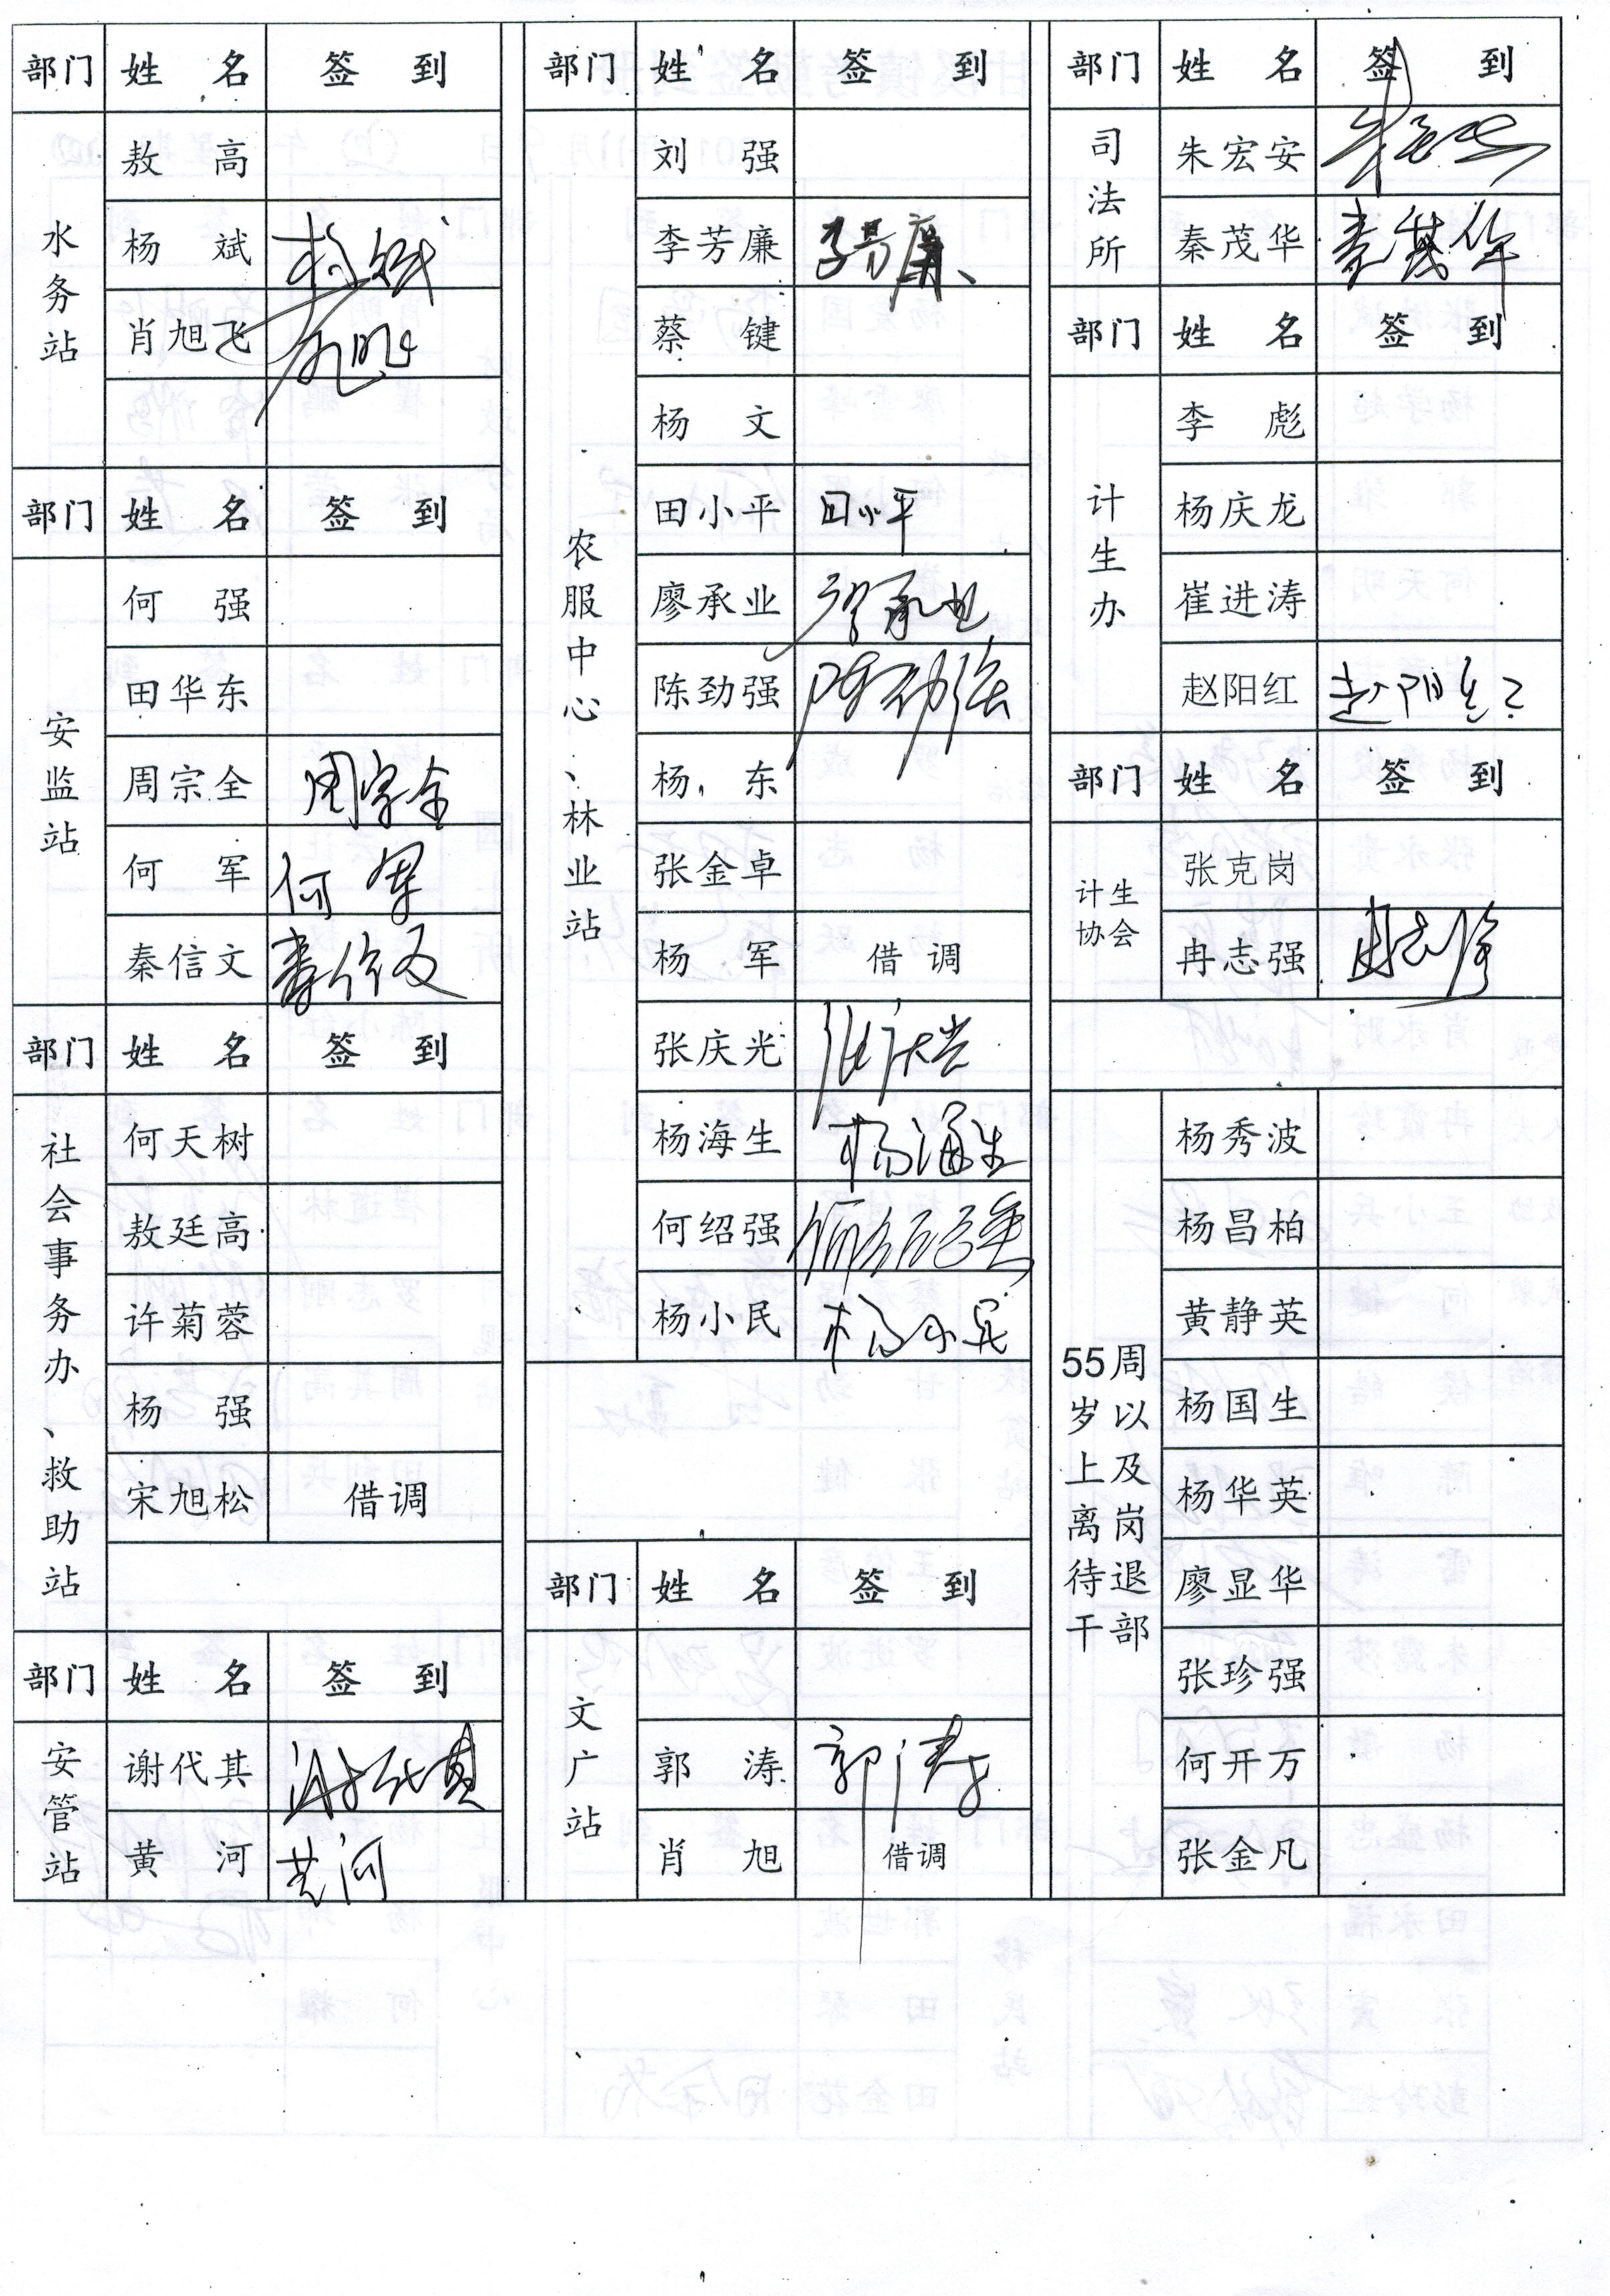 部门 姓名 签到
水务站
敖高
杨斌 杨斌
肖旭飞
部门 姓名 签到
安监站
何强
田华东
周宗全 周宗全
何军 何军
秦信文 秦信文
部门 姓名 签到
社会事务办、救助站
何天树
敖廷高
许菊蓉
杨强
宋旭松 借调
部门 姓名 签到
安管站
谢代其 谢代其
黄河 黄河
部门 姓名 签到
农服中心、林业站
刘强
李芳廉 李芳廉
蔡键
杨文
田小平 田小平
廖承业 廖承业
陈劲强 陈劲强
杨东
张金卓
杨军 借调
张庆光 张庆光
杨海生 杨海生
何绍强 何绍强
杨小民 杨小民
部门 姓名 签到
文广站
郭涛 郭涛
肖旭 借调
部门 姓名 签到
司法所
朱宏安 朱宏安
秦茂华 秦茂华
部门 姓名 签到
计生办
李彪
杨庆龙
崔进涛
赵阳红 赵阳红
部门 姓名 签到
计生
协会
张克岗
冉志强 冉志强
55周
岁以
上及
离岗
待退
干部
杨秀波
杨昌柏
黄静英
杨国生
杨华英
廖显华
张珍强
何开万
张金凡